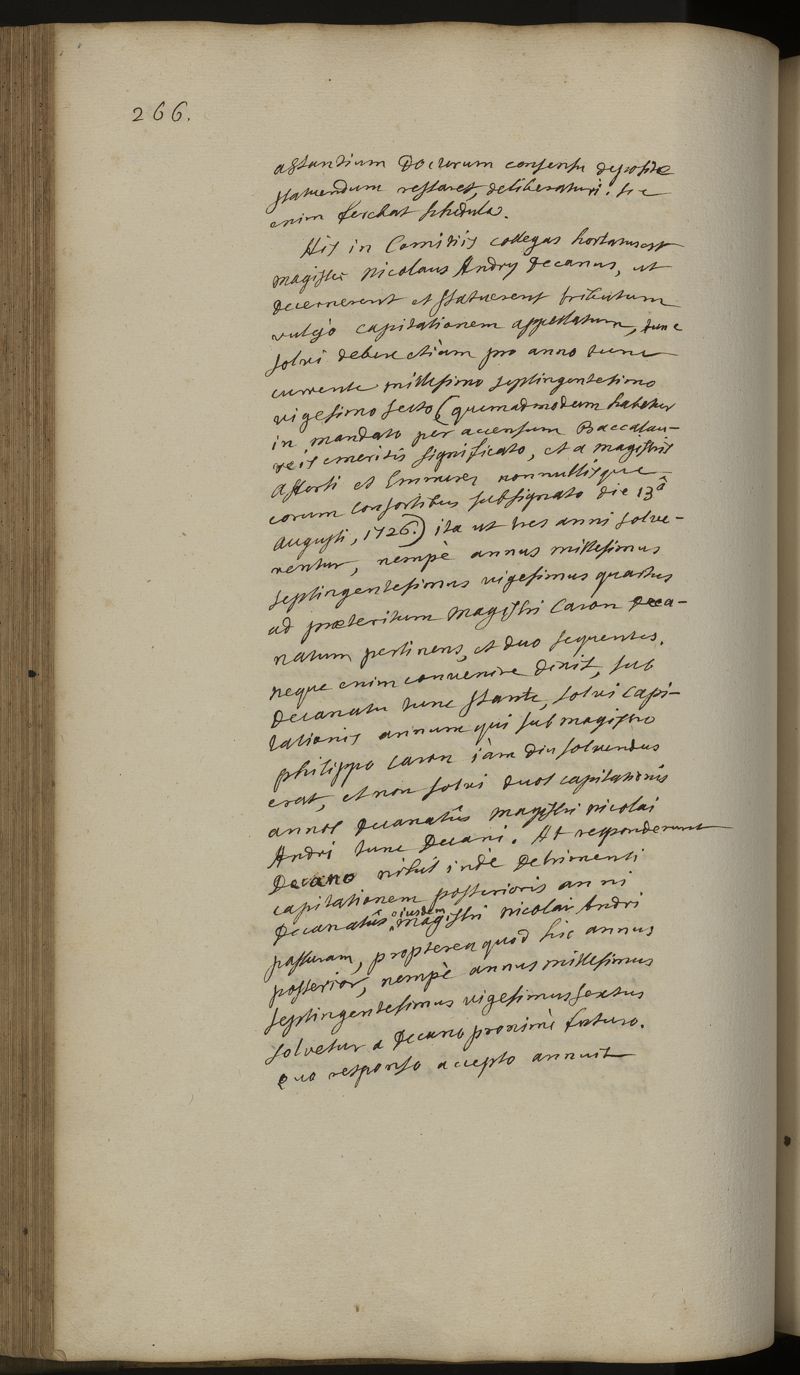 266.
astantium Doctorum consensu deposite
statuendum restaret, deliberaturi. sic
enim ferebat schedula.
His in Comitiis collegas hortatus est
magister Nicolaus Andry Decanus, ut
decernerent et statuerent tributum
vulgò capitationem appellatum, tunc
solvi debere etiam pro anno tunc
currente millesimo septingentesimo
vigesimo sexto (quemadmodum habetur
in mandato per accensum Baccalau-
reis emeritis significato, et a magistris
Afforti et Emmerez nonnullisque
eorum consortibus subsignato die 13â
Augusti, 1726.) ita ut tres anni solve-
rentur, nempè annus millesimus
septingentesimus vigesimus quartus
ad præteritum magistri Caron deca-
natum pertinens, et duo sequentes.
neque enim convenire dixit, sub
Decanatu tunc stante, solvi capi-
tationis annum qui sub magistro
philippo Caron iàm diu solvendus
erat, et non solvi duos capitationis
annos decanatûs magistri nicolai
Andri tunc Decani. At responderunt
Decano nihil indè detrimenti
capitationem posterioris anni
Decanatûs eiusdem magistri nicolai Andri
passuram, propterea quod hic annus
posterior, nempè annus millesimus
septingentesimus vigesimus sextus
solvetur a Decano proximè futuro.
quo responso accepto annuit